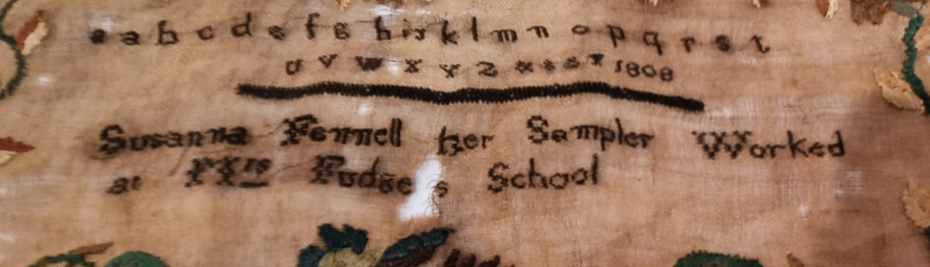 a a b c d e f g h i k l m n o p q r s t
u v w x y z 1808
Susanna Fennell her Sampler Worked
at Ms Fudge s School